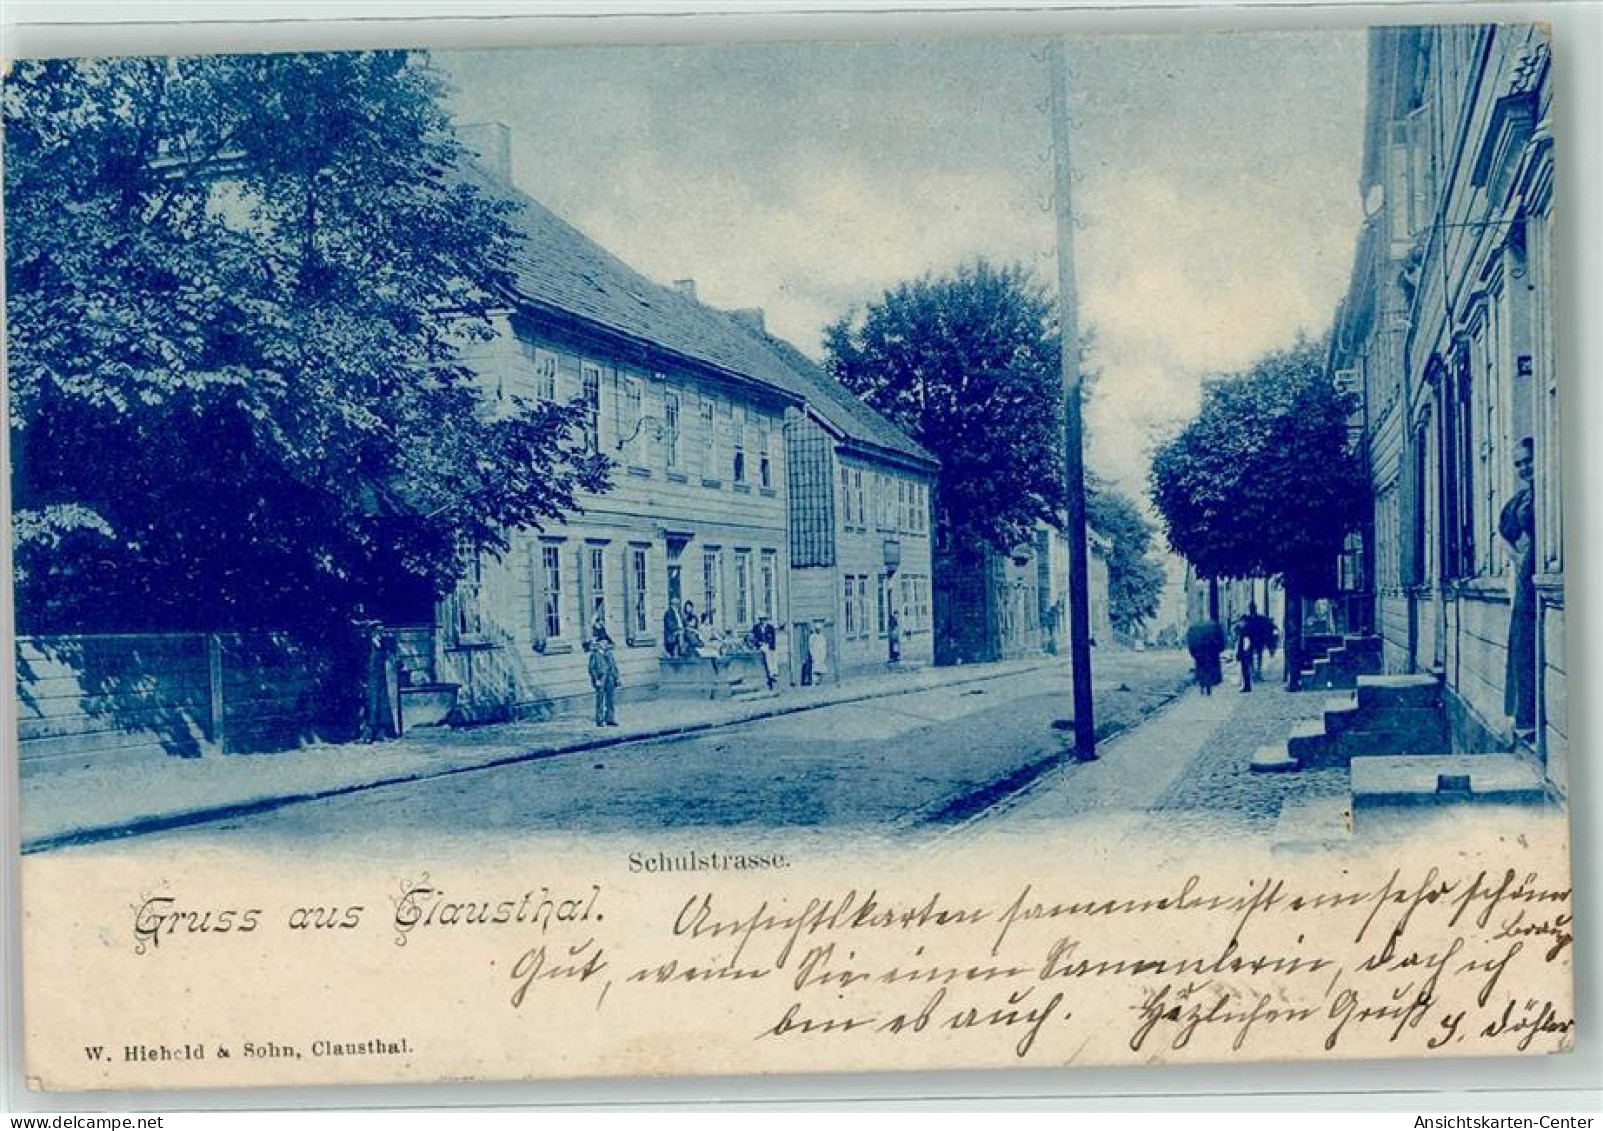 Schulstrasse.
Gruss aus Clausthal.
Ansichtskarten sammeln ist ein sehr schöner
Brauch
Gut, wenn Sie einen Sammlerin, doch ich
bin es auch. Herzlichen Gruß
J. Döhler
W. Hiehold & Sohn, Clausthal.
AnsichtsKarten-Center